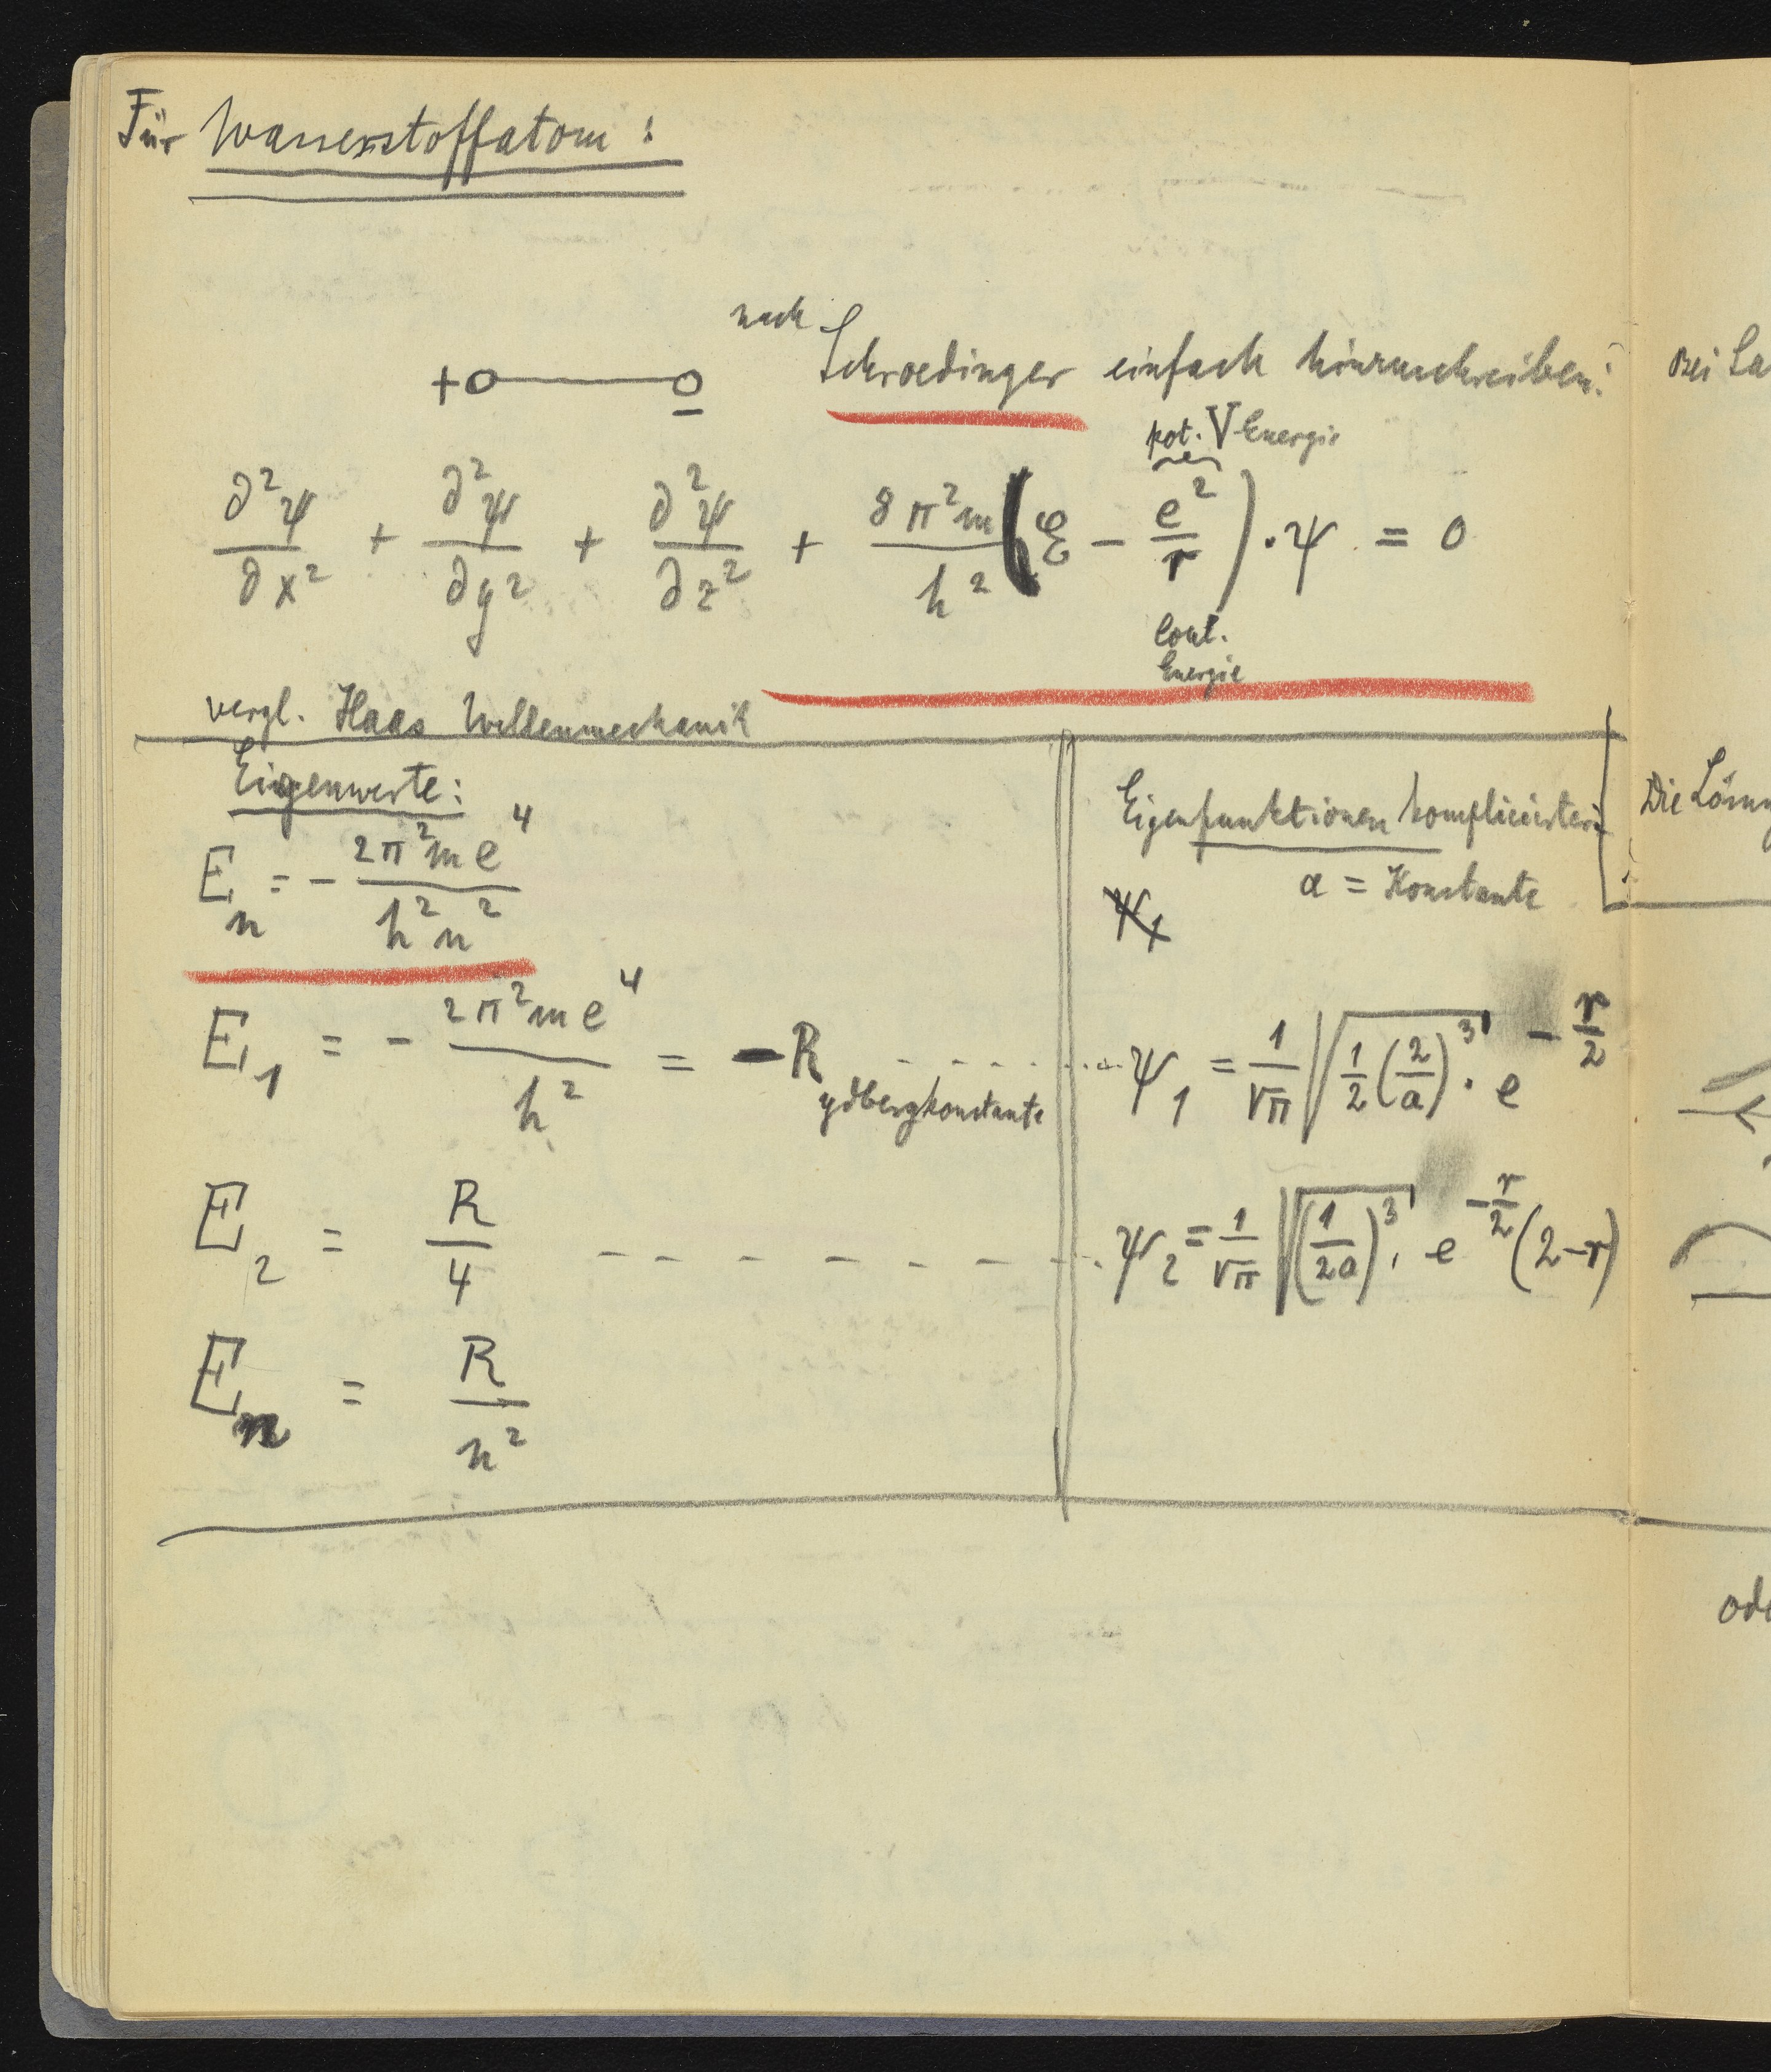 Für Wasserstoffatom:
nach Schroedinger einfach hinzuschreiben:
+o——o
−
pot. V Energie
∂²ψ/∂x² + ∂²ψ/∂y² + ∂²ψ/∂z² + 8π²m/h² (ℰ − e²/r) · ψ = 0
Coul.
Energie
vergl. Haas Wellenmechanik
Eigenwerte:
E_n = − 2π²me⁴/h²n²
E_1 = − 2π²me⁴/h² = −Rydbergkonstante
E_2 = R/4
E_n = R/n²
Eigenfunktionen komplicierter:
a = Konstante
ψ_1
ψ_1 = 1/√π √(1/2 (2/a)³) · e^(−r/2)
ψ_2 = 1/√π √((1/2a)³) · e^(−r/2) (2−r)
Bei La
Die Lösun
ode